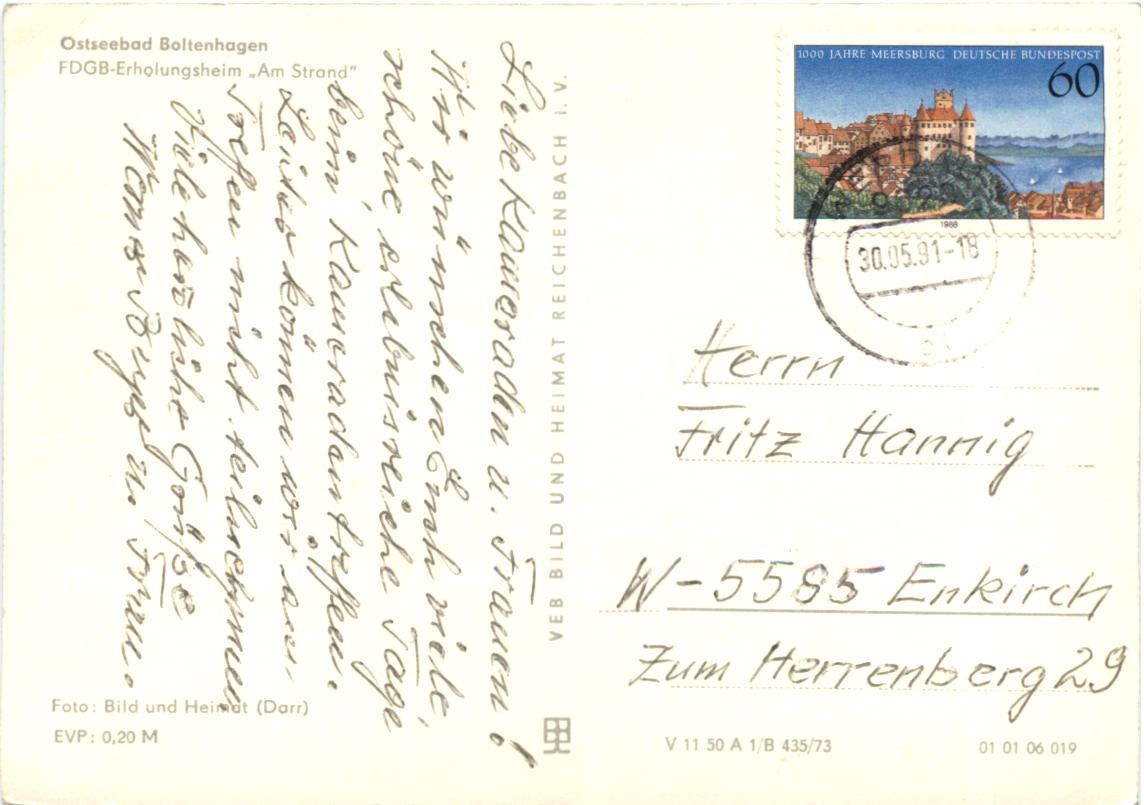 Ostseebad Boltenhagen
FDGB-Erholungsheim „Am Strand"
Liebe Kameraden u. Frauen!
Wir wünschen Euch viele,
schöne erlebnisreiche Tage
beim Kameradentreffen.
Leider können wir am
Treffen nicht teilnehmen.
Viele herzliche Grüße
u. Frau.
Foto: Bild und Heimat (Darr)
EVP: 0,20 M
VEB BILD UND HEIMAT REICHENBACH I. V.
1000 JAHRE MEERSBURG DEUTSCHE BUNDESPOST
60
1988
30.05.91-18
Herrn
Fritz Hannig
W-5585 Enkirch
Zum Herrenberg 29
V 11 50 A 1/B 435/73
01 01 06 019